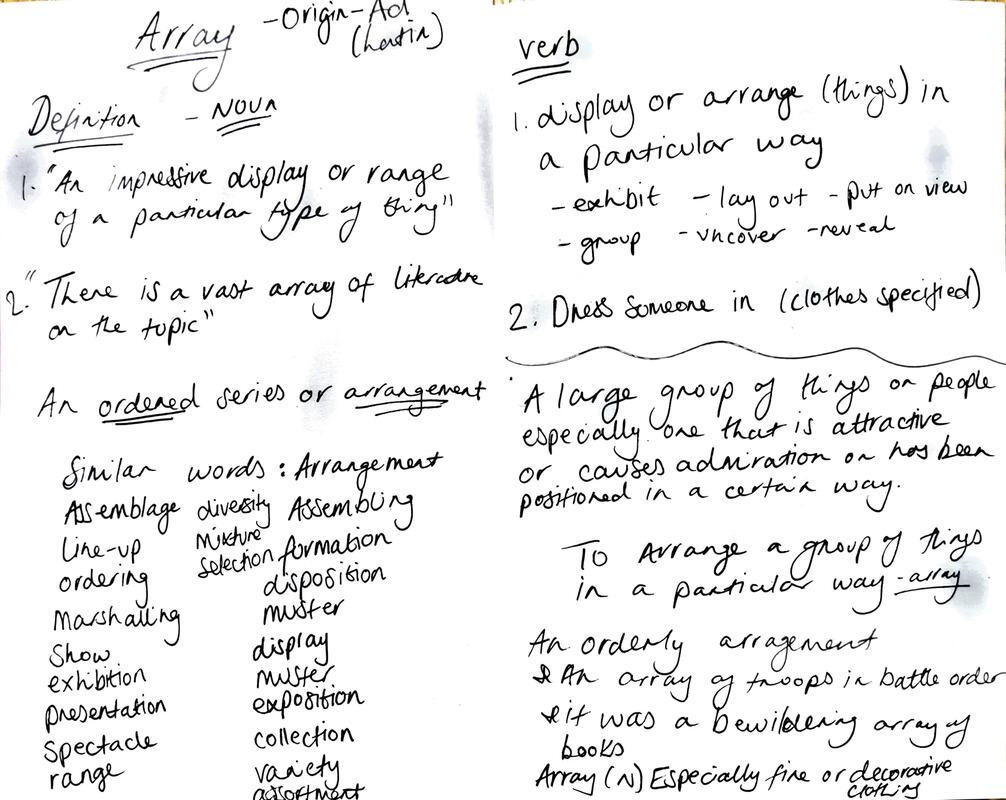 Array - Origin - Ad
(Latin)
Definition - NOUN
1. "An impressive display or range
of a particular type of thing"
2. "There is a vast array of literature
on the topic"
An ordered series or arrangement
Similar words : Arrangement
Assemblage diversity Assembling
Line-up mixture formation
ordering selection disposition
Marshalling muster
Show display
exhibition muster
presentation exposition
spectacle collection
range variety
assortment
verb
1. display or arrange (things) in
a particular way
- exhibit - lay out - put on view
- group - uncover - reveal
2. Dress someone in (clothes specified)
A large group of things or people
especially one that is attractive
or causes admiration or has been
positioned in a certain way.
To Arrange a group of things
in a particular way - array
An orderly arragement
& An array of troops in battle order
& it was a bewildering array of
books
Array (N) Especially fine or decorative
clothing